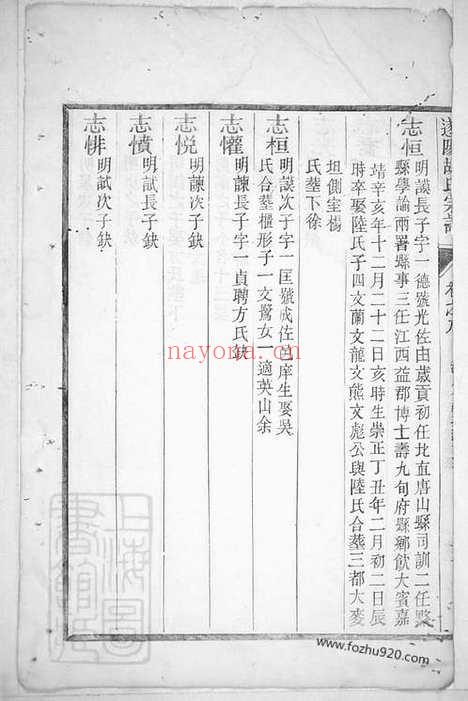 志恒
明謨長子字一德號光佐由歲貢初任北直唐山縣司訓二任黟
縣學諭兩署縣事三任江西益郡博士壽九旬府縣鄉飲大賓嘉
靖辛亥年十二月二十二日亥時生崇正丁丑年二月初二日辰
時卒娶陸氏子四文蘭文龍文熊文彪公與陸氏合塟三都大麥
坦側室楊
氏塟下徐
志桓
明謨次子字一匡號成佐邑庠生娶吳
氏合塟櫃形子一文鸑女一適英山余
志懽
明諫長子字一貞聘方氏缺
志悅
明諫次子缺
志憤
明試長子缺
志悱
明試次子缺
nayona.cn
上海圖書館藏
www.fozhu920.com